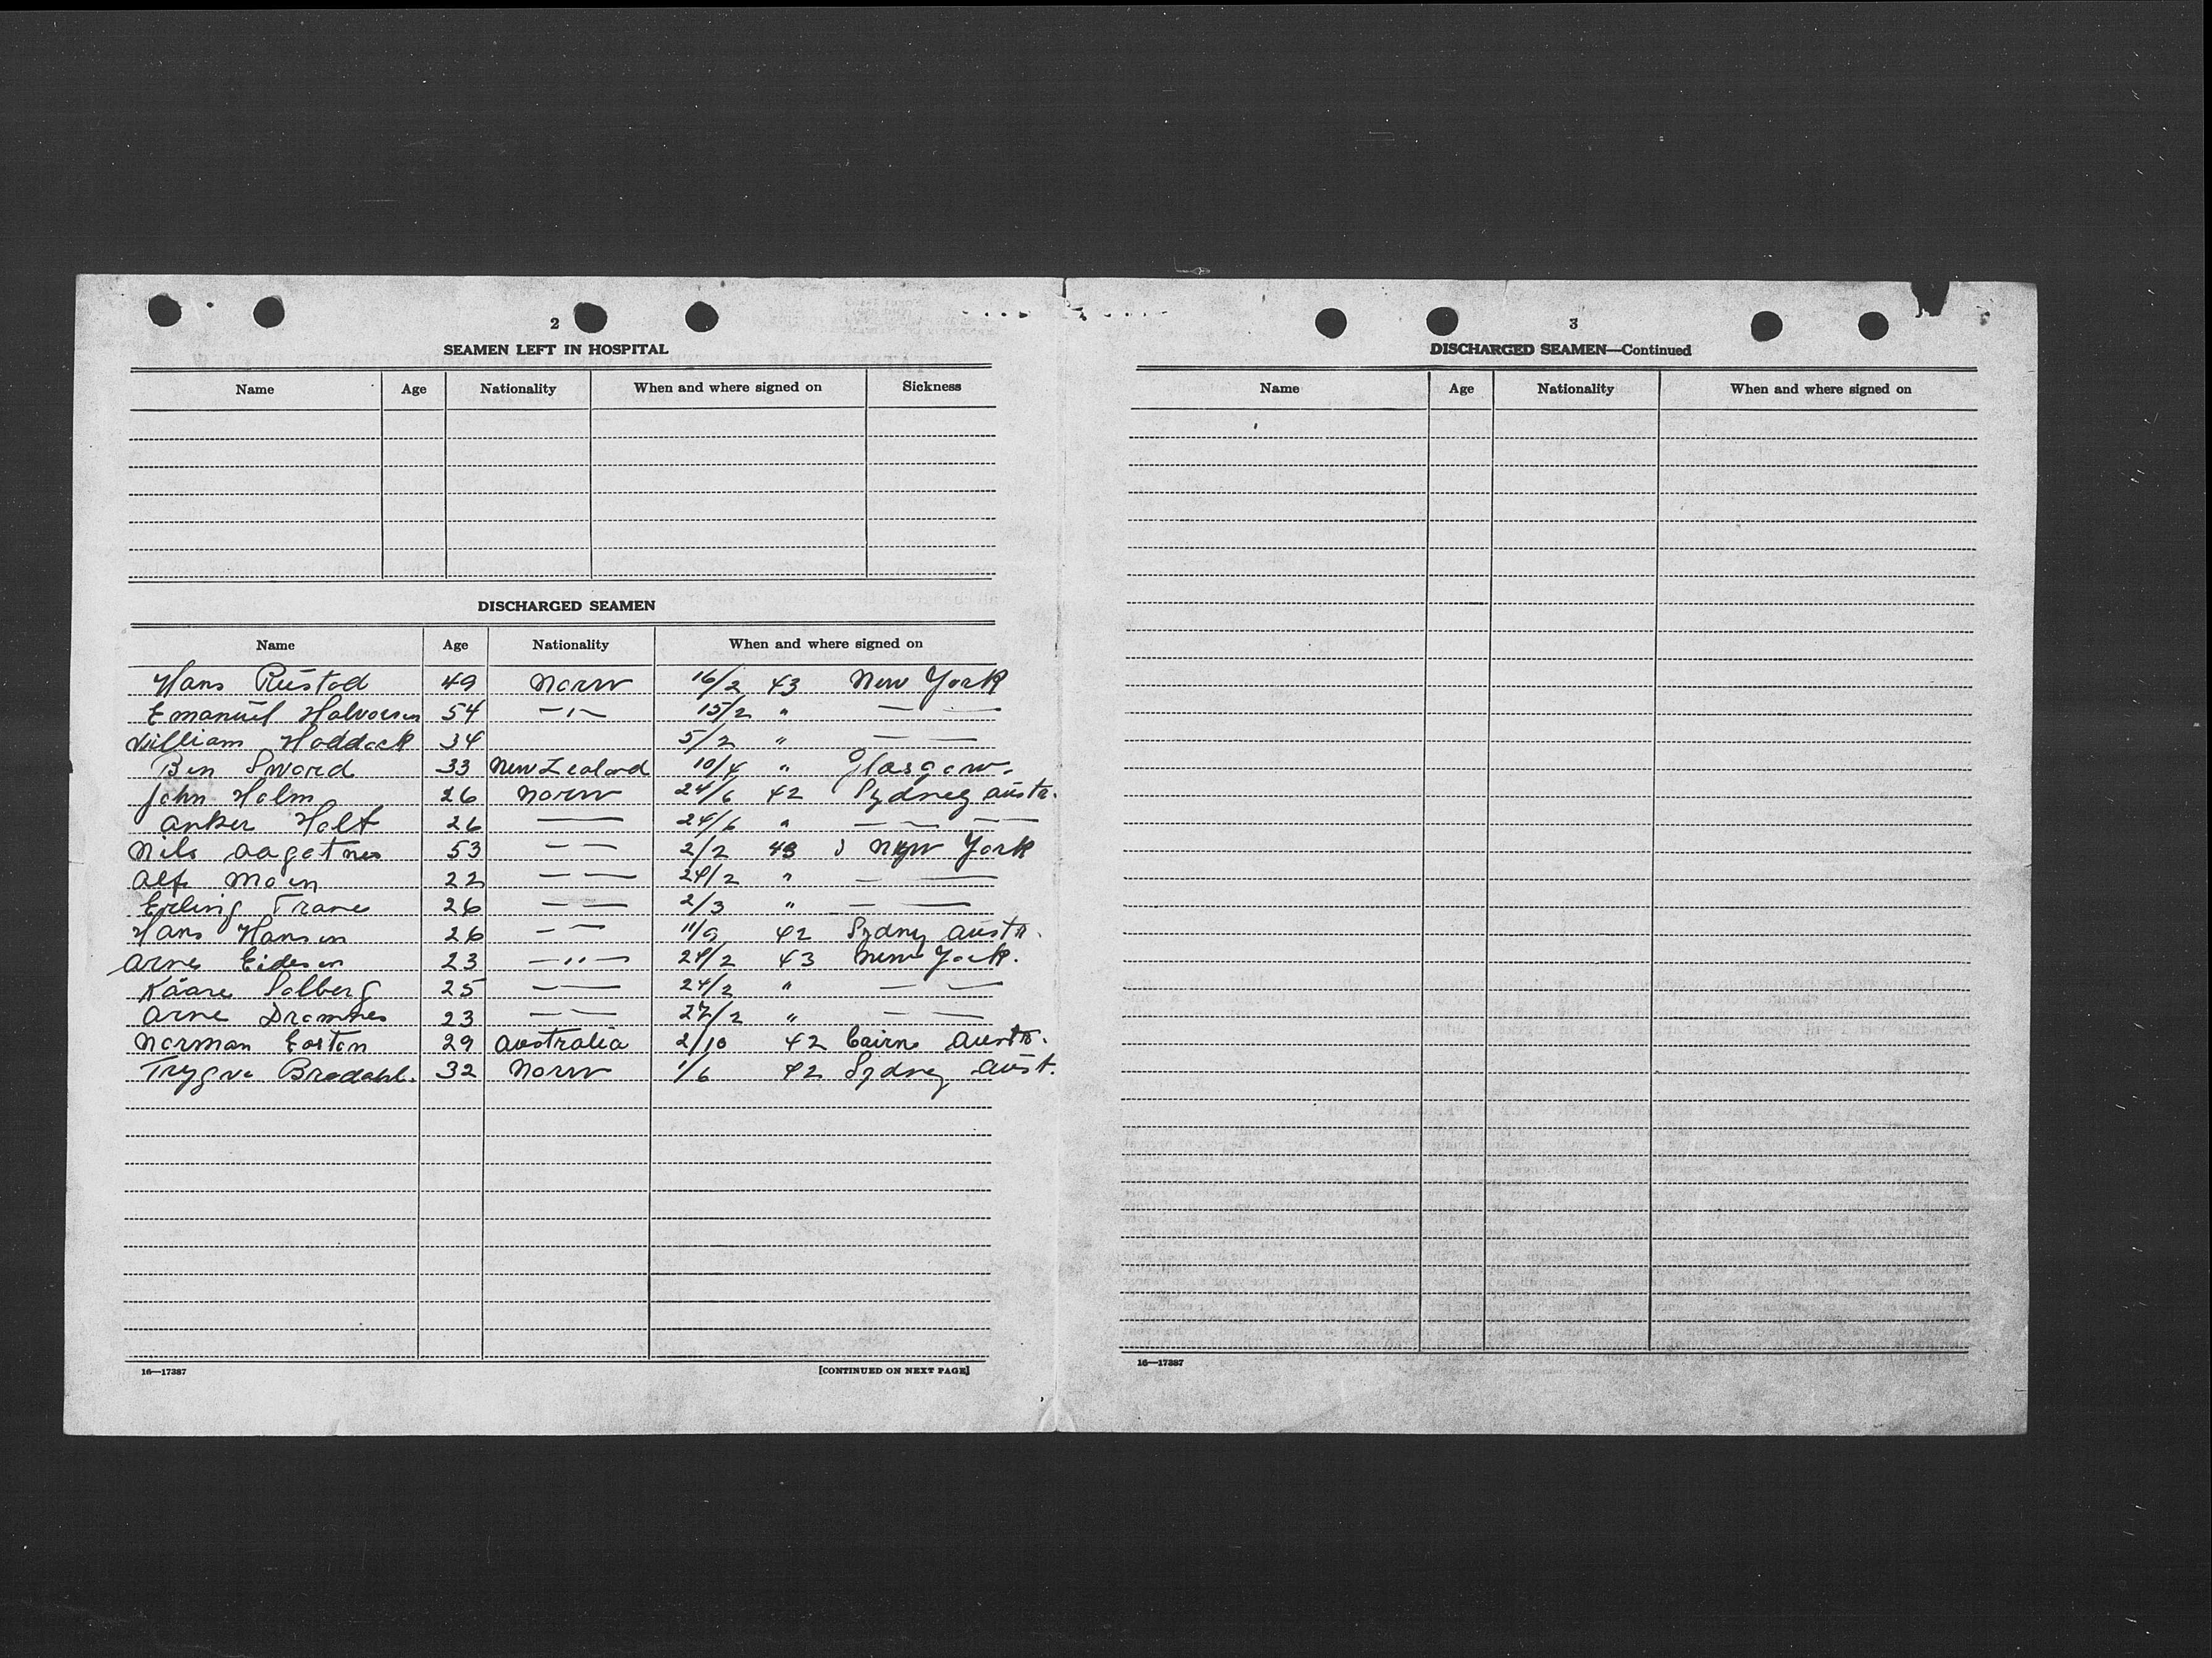 2
SEAMEN LEFT IN HOSPITAL
Name Age Nationality When and where signed on Sickness
DISCHARGED SEAMEN
Name Age Nationality When and where signed on
Hans Rustad 49 Norw 16/2 43 New York
Emanuel Halvorsen 54 —"— 15/2 " — —
William Hoddock 34 5/2 " — —
Ben Sword 33 New Zealand 10/4 " Glasgow.
John Holm 26 Norw 24/6 42 Sydney Austr.
Anker Holt 26 — 24/6 " — — —
Nils Aagotnes 53 — — 2/2 43 New York
Alf Moen 22 — — 24/2 " — —
Erling Trane 26 — — 2/3 " — —
Hans Hansen 26 — — 11/9 42 Sydney Austr.
Arne Eidesen 23 —"— 24/2 43 New York.
Kaare Solberg 25 — — 24/2 " — —
Arne Dramnes 23 — — 27/2 " — —
Norman Easton 29 Australia 2/10 42 Cairns Austr.
Trygve Bradahl. 32 Norw 1/6 42 Sydney Aust.
16—17387 [CONTINUED ON NEXT PAGE]
3
DISCHARGED SEAMEN—Continued
Name Age Nationality When and where signed on
16—17387